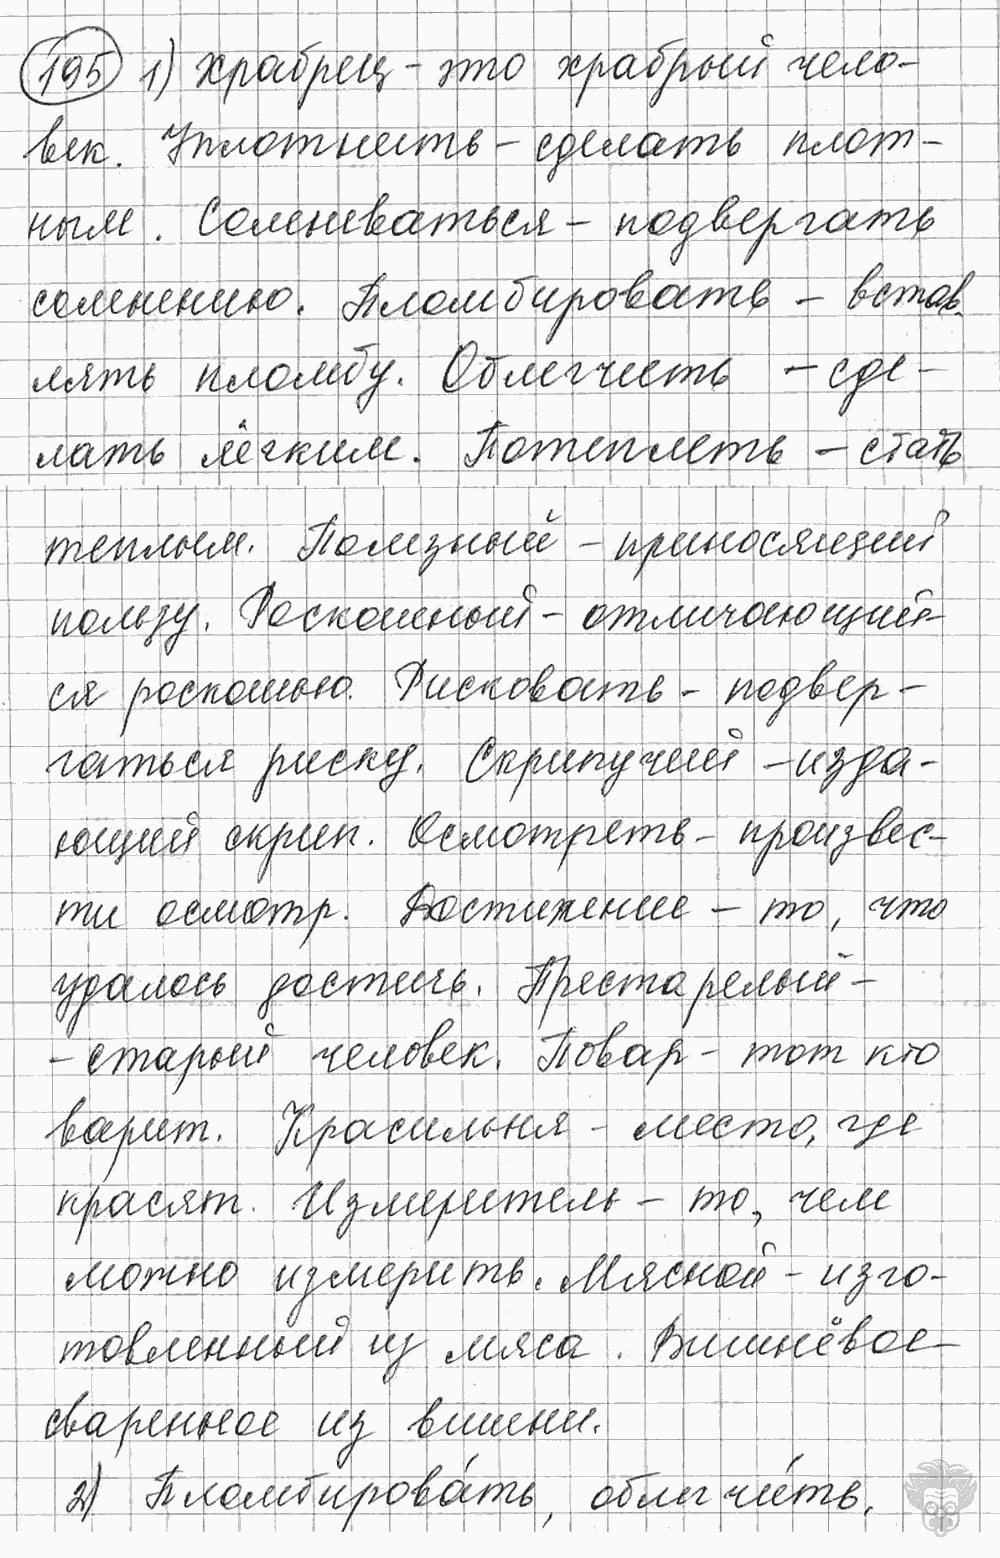 195 1) Храбрец – это храбрый чело-
век. Уплотнить – сделать плот-
ным. Сомневаться – подвергать
сомнению. Пломбировать – встав-
лять пломбу. Облегчить – сде-
лать лёгким. Потеплеть – стать
теплым. Полезный – приносящий
пользу. Роскошный – отличающий-
ся роскошью. Рисковать – подвер-
гаться риску. Скрипучий – изда-
ющий скрип. Осмотреть – произвес-
ти осмотр. Достижение – то, что
удалось достичь. Престарелый –
– старый человек. Повар – тот кто
варит. Красильня – место, где
красят. Измеритель – то, чем
можно измерить. Мясной – изго-
товленный из мяса. Вишнёвое –
сваренное из вишни.
2) Пломбирова́ть, облегчи́ть,